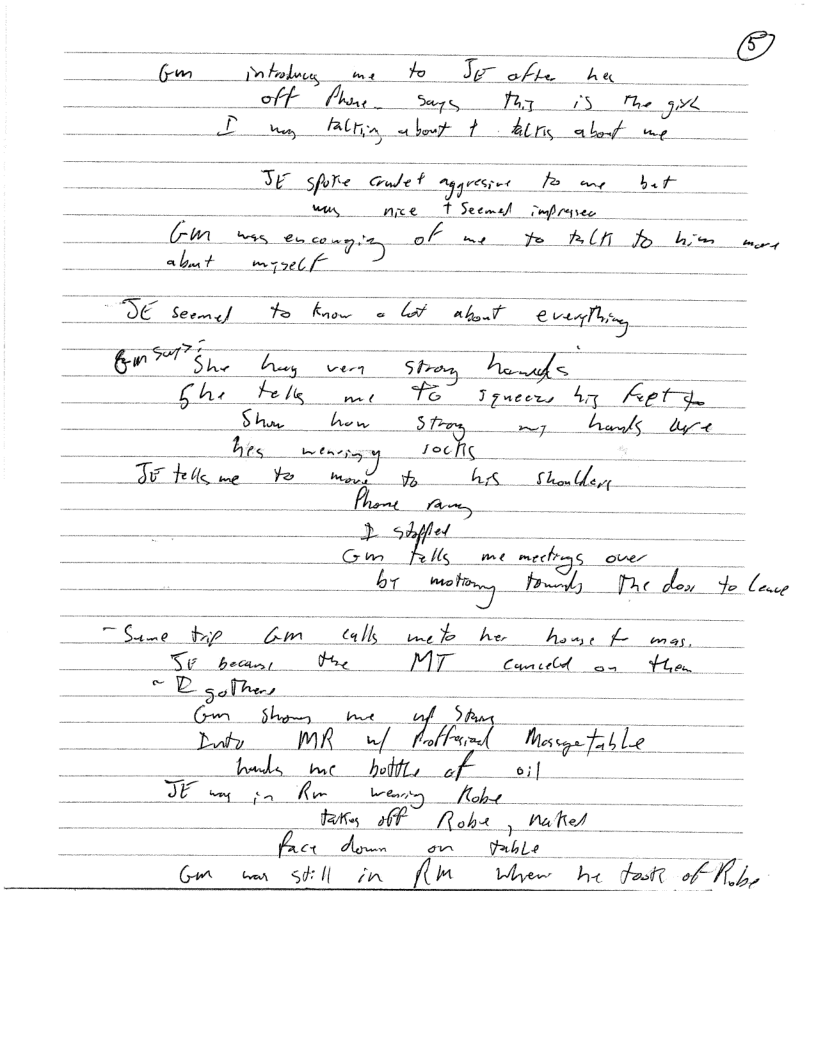 5
Gm introduces me to JE after hes
off Phone - says this is the girl
I was talking about + talks about me
JE spoke crude + aggresive to me but
was nice + seemed impressed
Gm was encouraging of me to talk to him more
about myself
JE seemed to know a lot about everything
Gm says: She has very strong hands
She tells me to squeeze his feet to
Show how strong my hands are
hes wearing socks
JE tells me to move to his shoulders
Phone rang
I stopped
Gm tells me meetings over
by motioning towards the door to leave
- Same trip Gm calls me to her house to mas.
JE because the MT canceled on them
~ I go there
Gm shows me up stairs
Into MR w/ Proffesional Massage table
hands me bottle of oil
JE was in Rm wearing Robe
takes off Robe, naked
face down on table
Gm was still in RM when he took of Robe